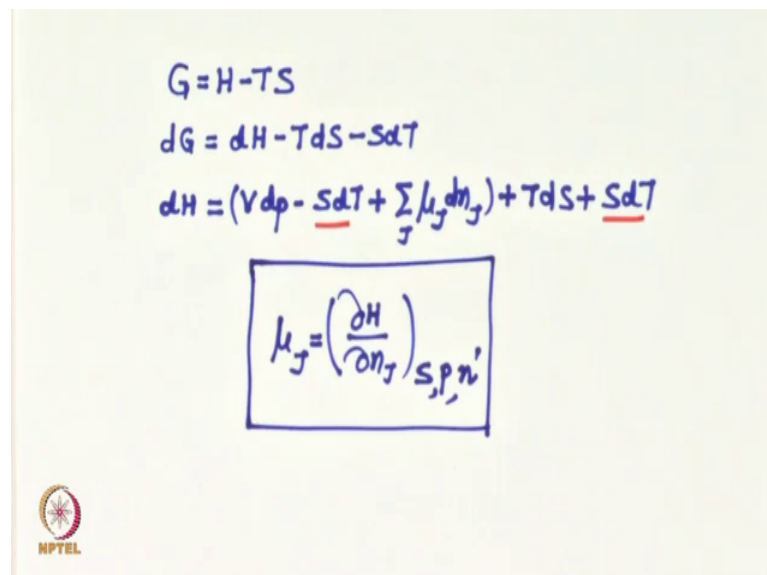 G = H - TS
dG = dH - TdS - SdT
dH = (Vdp - SdT + Σ_J μ_J dn_J) + TdS + SdT
μ_J = (∂H/∂n_J)_S,p,n'
NPTEL